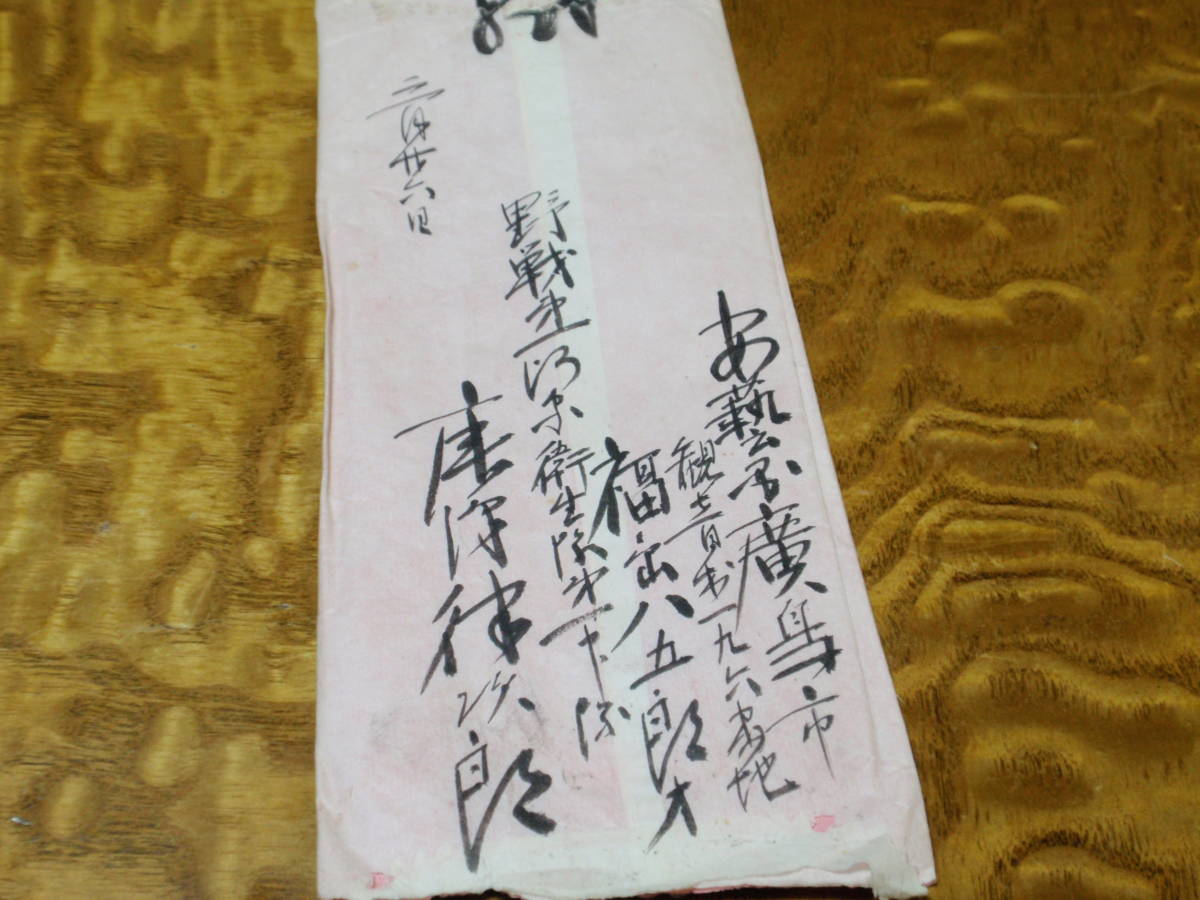 安藝國廣島市
観音村一九六番地
福島八五郎方
野戦第一師団衛生隊第一中隊
唐澤律次郎
二月廿六日